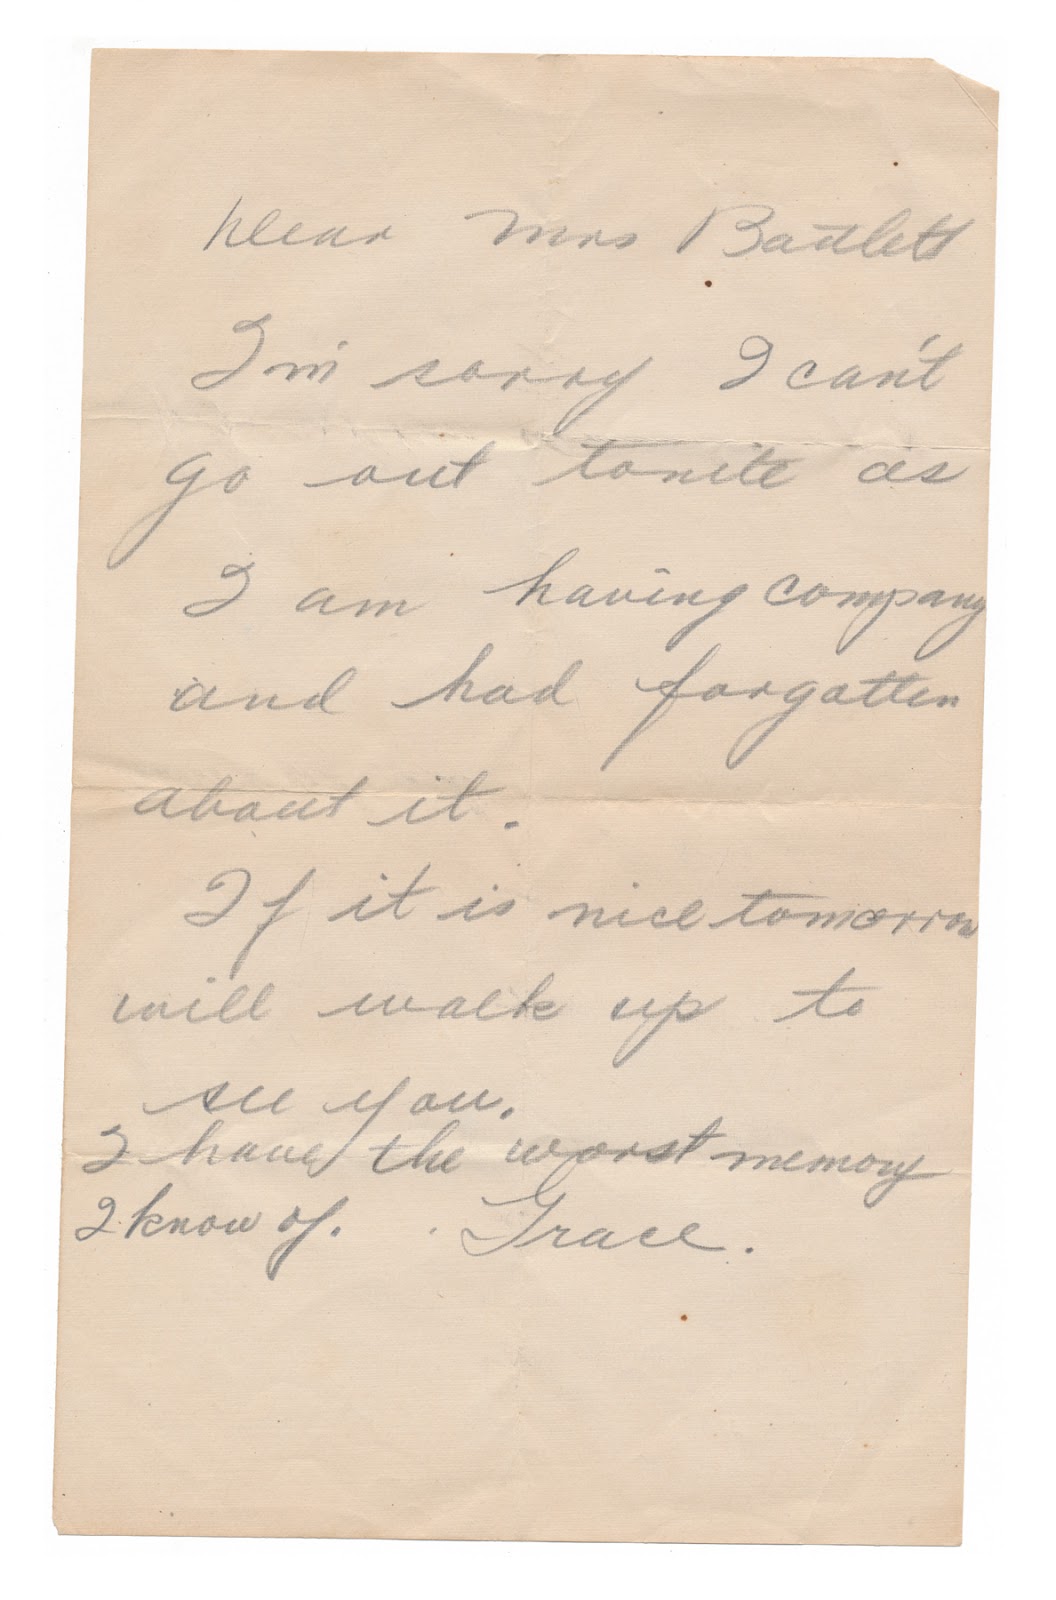 Dear Mrs Bartlett
I'm sorry I can't
go out tonite as
I am having company
and had forgotten
about it.
If it is nice tomorrow
will walk up to
see you.
I have the worst memory
I know of. Grace.